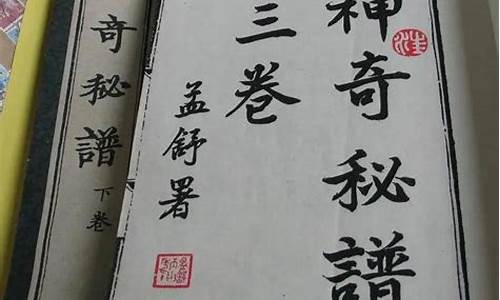 神奇秘譜
三卷
孟舒署
奇秘譜
下卷